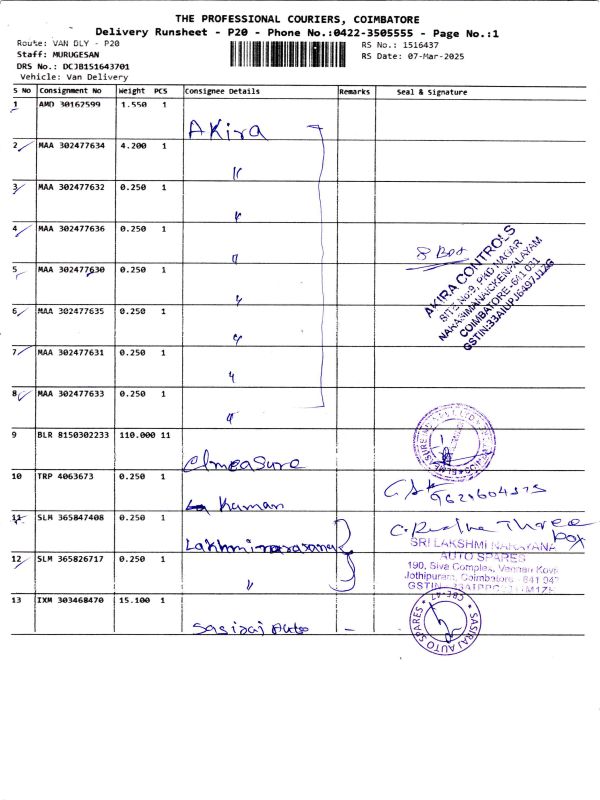 THE PROFESSIONAL COURIERS, COIMBATORE
Delivery Runsheet - P20 - Phone No.:0422-3505555 - Page No.:1
Route: VAN DLY - P20
Staff: MURUGESAN
DRS No.: DCJB151643701
Vehicle: Van Delivery
RS No.: 1516437
RS Date: 07-Mar-2025
S No Consignment No Weight PCS Consignee Details Remarks Seal & Signature
1 AMD 30162599 1.550 1
Akira
2 MAA 302477634 4.200 1
"
3 MAA 302477632 0.250 1
"
4 MAA 302477636 0.250 1
"
8 Box
5 MAA 302477630 0.250 1
"
6 MAA 302477635 0.250 1
"
7 MAA 302477631 0.250 1
"
8 MAA 302477633 0.250 1
"
AKIRA CONTROLS
SITE No:9, PKD NAGAR
NARASIMANAICKENPALAYAM
COIMBATORE-641 031
9 BLR 8150302233 110.000 11
Elmeasure
10 TRP 4063673 0.250 1
Kuman
11 SLM 365847408 0.250 1
Three
box
SRI LAKSHMI NARAYANA
AUTO SPARES
190, Siva Complex,
Jothipuram, Coimbatore - 641 047
GSTIN
12 SLM 365826717 0.250 1
"
13 IXM 303468470 15.100 1
Sasiraj Auto -
SASIRAJ AUTO SPARES
CBE-47